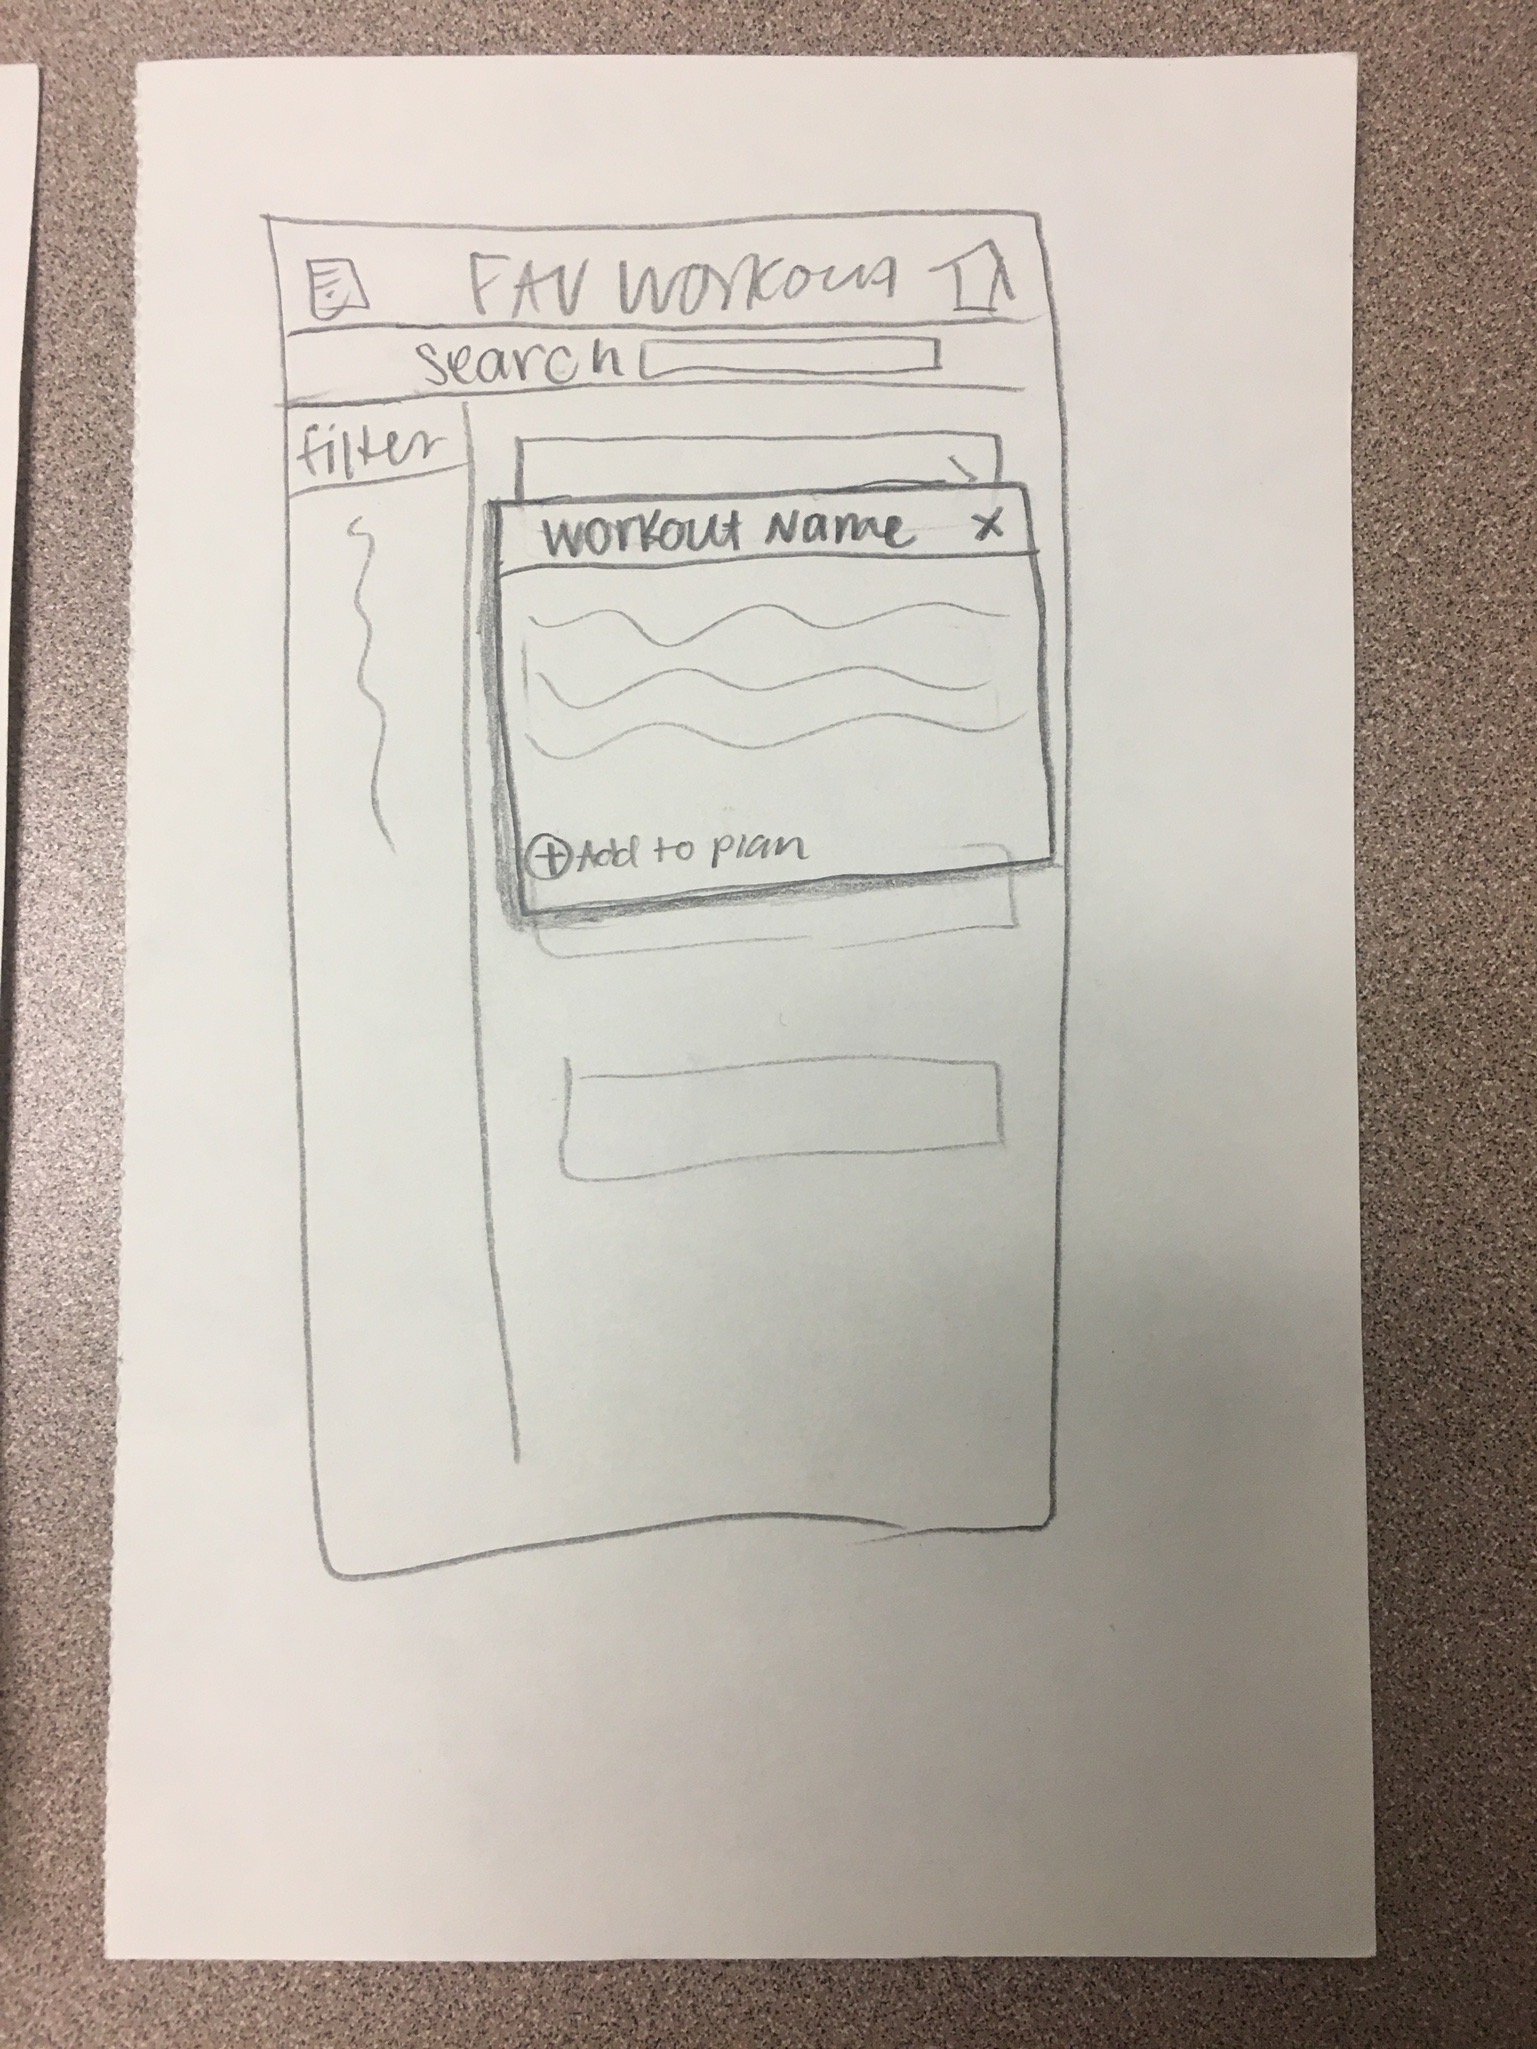 FAV WORKOUT
search
filter
Workout Name X
+ Add to plan